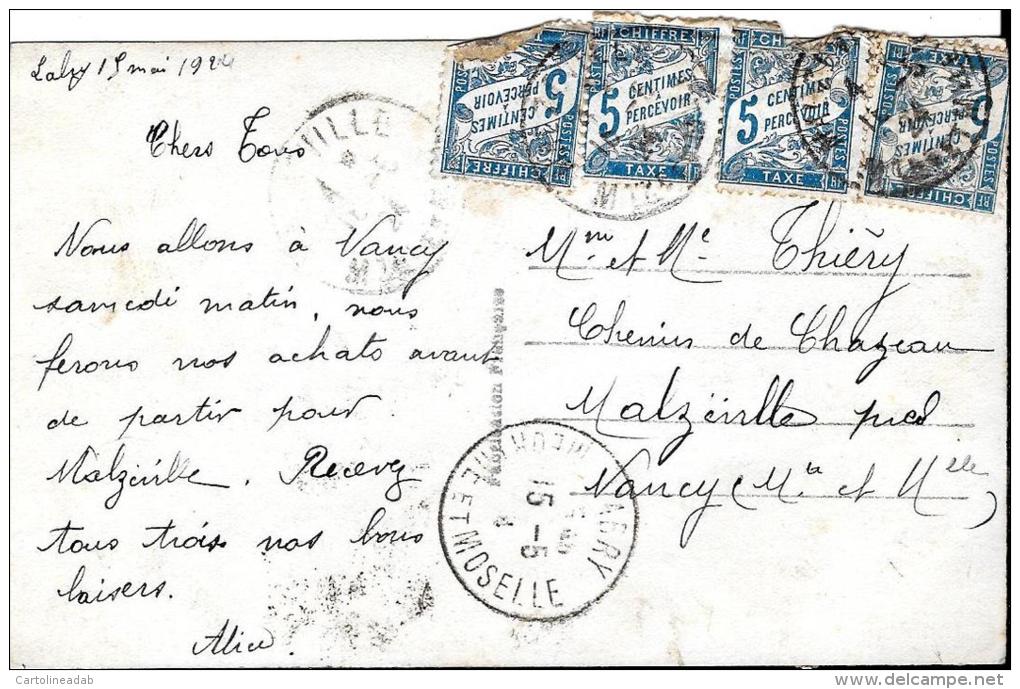 15 mai 1924
Chers Tous
Nous allons à Nancy
samedi matin, nous
ferons nos achats avant
de partir pour
Malzéville. Recevez
tous trois nos bons
baisers.
Alice.
Fabrication Française
CENTIMES
5 À
PERCEVOIR
POSTES
CHIFFRE
RF
CHIFFRE
5 CENTIMES
À
PERCEVOIR
POSTES
TAXE
CHIFFRE
5 CENTIMES
À
PERCEVOIR
POSTES
TAXE
RF
TAXE
CENTIMES
5 À
PERCEVOIR
POSTES
CHIFFRE
RF
VILLE
Mr et Me Thiéry
Chemin de Chazeau
Malzéville près
Nancy (Mthe et Mselle)
LABRY
15 -5
MEURTHE ET MOSELLE
© Cartolineadab
delcampe.net